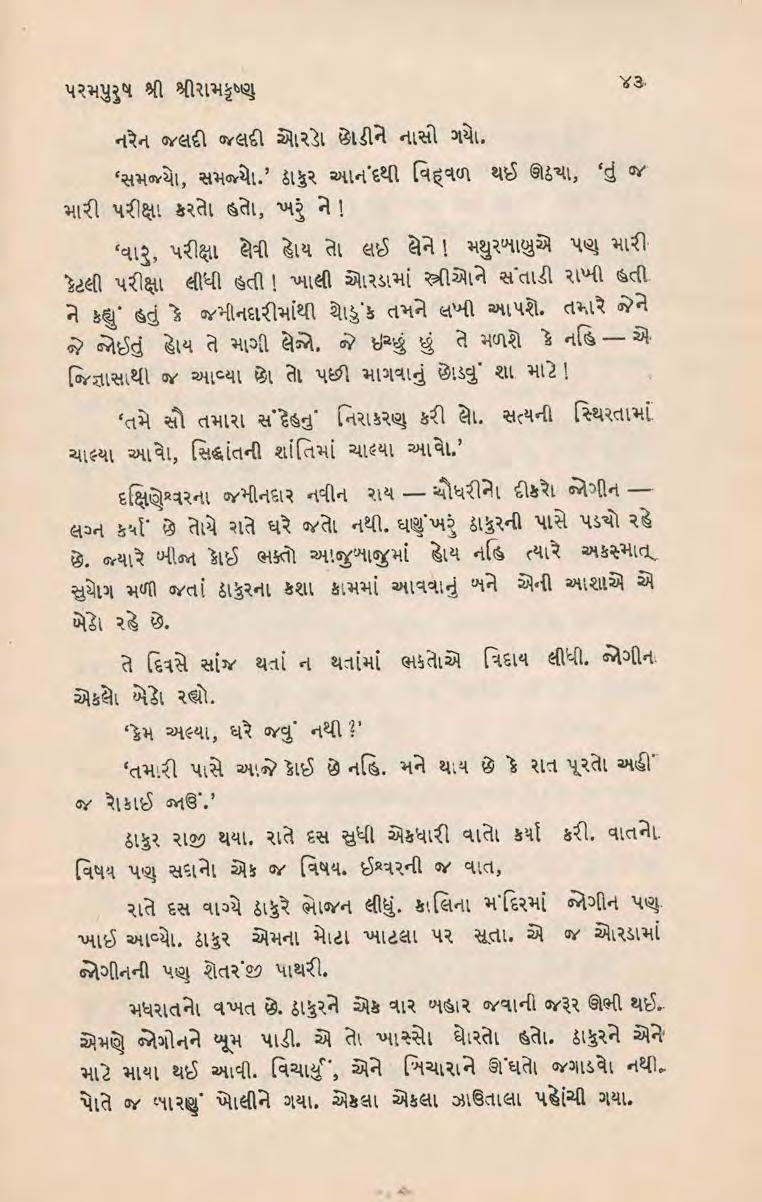 પરમપુરુષ શ્રી શ્રીરામકૃષ્ણ
૪૩
નરેન જલદી જલદી ઓરડો છોડીને નાસી ગયો.
‘સમજ્યો, સમજ્યો.’ ઠાકુર આનંદથી વિહ્વળ થઈ ઊઠ્યા, ‘તું જ
મારી પરીક્ષા કરતો હતો, ખરું ને !
‘વારુ, પરીક્ષા લેવી હોય તો લઈ લેને ! મથુરબાબુએ પણ મારી
કેટલી પરીક્ષા લીધી હતી ! ખાલી ઓરડામાં સ્ત્રીઓને સંતાડી રાખી હતી
ને કહ્યું હતું કે જમીનદારીમાંથી થોડુંક તમને લખી આપશે. તમારે જેને
જે જોઈતું હોય તે માગી લેજો. જે ઇચ્છું છું તે મળશે કે નહિ — એ
જિજ્ઞાસાથી જ આવ્યા છો તો પછી માગવાનું છોડવું શા માટે !
‘તમે સૌ તમારા સંદેહનું નિરાકરણ કરી લો. સત્યની સ્થિરતામાં
ચાલ્યા આવો, સિદ્ધાંતની શાંતિમાં ચાલ્યા આવો.’
દક્ષિણેશ્વરના જમીનદાર નવીન રાય — ચૌધરીનો દીકરો જોગીન —
લગ્ન કર્યાં છે તોયે રાતે ઘરે જતો નથી. ઘણુંખરું ઠાકુરની પાસે પડ્યો રહે
છે. જ્યારે બીજા કોઈ ભક્તો આજુબાજુમાં હોય નહિ ત્યારે અકસ્માત્
સુયોગ મળી જતાં ઠાકુરના કશા કામમાં આવવાનું બને એની આશાએ એ
બેઠો રહે છે.
તે દિવસે સાંજ થતાં ન થતાંમાં ભક્તોએ વિદાય લીધી. જોગીન
એકલો બેઠો રહ્યો.
‘કેમ અલ્યા, ઘરે જવું નથી ?’
‘તમારી પાસે આજે કોઈ છે નહિ. મને થાય છે કે રાત પૂરતો અહીં
જ રોકાઈ જાઉં.’
ઠાકુર રાજી થયા. રાતે દસ સુધી એકધારી વાતો કર્યા કરી. વાતનો
વિષય પણ સદાનો એક જ વિષય. ઈશ્વરની જ વાત,
રાતે દસ વાગ્યે ઠાકુરે ભોજન લીધું. કાલિના મંદિરમાં જોગીન પણ
ખાઈ આવ્યો. ઠાકુર એમના મોટા ખાટલા પર સૂતા. એ જ ઓરડામાં
જોગીનની પણ શેતરંજી પાથરી.
મધરાતનો વખત છે. ઠાકુરને એક વાર બહાર જવાની જરૂર ઊભી થઈ.
એમણે જોગીનને બૂમ પાડી. એ તો ખાસ્સો ઘોરતો હતો. ઠાકુરને એને
માટે માયા થઈ આવી. વિચાર્યું, એને બિચારાને ઊંઘતો જગાડવો નથી.
પોતે જ બારણું ખોલીને ગયા. એકલા એકલા ઝાઉતાલા પહોંચી ગયા.